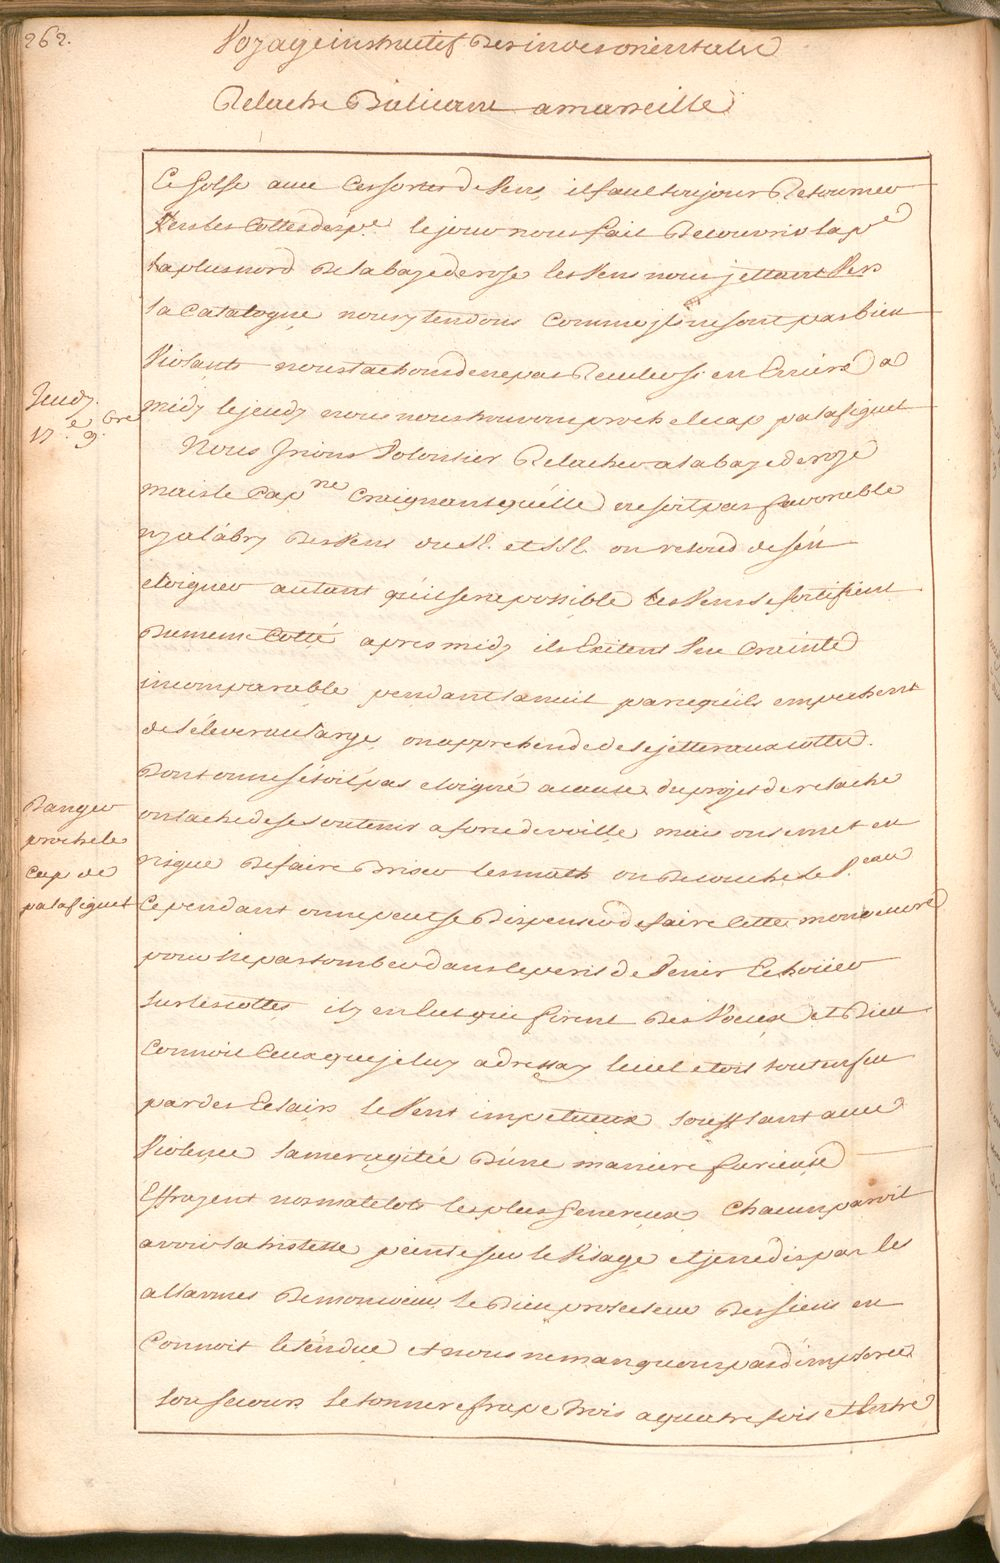 262.
Voyage instructif Des indes orientales
Relache a marseille
Ce Golfe avec Ces sortes de Vens, il faut toujour Retourner
Vers les Cottes d'esp.e le jour nous fait Decouvrir la p.e
la plus nord De la baye de rose les Vens nous jettant Vers
la Catalogne nous y tendons Comme ils ne sont pas bien
Violants nous tachons de ne pas Reculer si en Erriere a
Jeudy
17.e 9.bre
midy le jeudy nous nous trouvons proche le cap palafiguet
Nous Irions Volontier Relacher a la baye de roze
mais le Cap.ne Craignant qu'elle ne soit pas favorable
ny a l'abry Des Vens du et on resoud de s'en
eloigner autant qu'il sera possible les Vens se fortifient
Du meme Cotté apres midy ils Exitent Une Crainte
incomparable pendant la nuit parcequ'ils empechent
de s'elever au large, on apprehende de se jetter aux cottes.
Dont on ne s'etoit pas eloigné a cause du projet de relache
Danger
proche le
Cap de
palafiguet
on tache de se soutenir a force de voille mais on se met en
risque De faire Briser les math ou De coucher le V.eau
Cependant on ne peut se Dispenser de faire Cette manoeuvre
pour ne pas tomber dans le peril de Venir Echoüer
sur les cottes il y en Eut qui firent Des Voeux et Dieu
Connoit Ceux que je luy adressay le ciel etoit tout en feu
par des Eclairs le Vent impetueux soufflant avec
Violence la mer agitée D'une maniere furieuse
Effrayent nos matelots les plus Genereux Chacun paroit
avoir la tristesse peinte sur le Visage et je ne dis pas les
allarmes De mon coeur le Dieu protecteur Des siens en
Connoit l'etendue et nous ne manquons pas d'implorer
son secours le tonnere frape trois a quatre fois et Entre